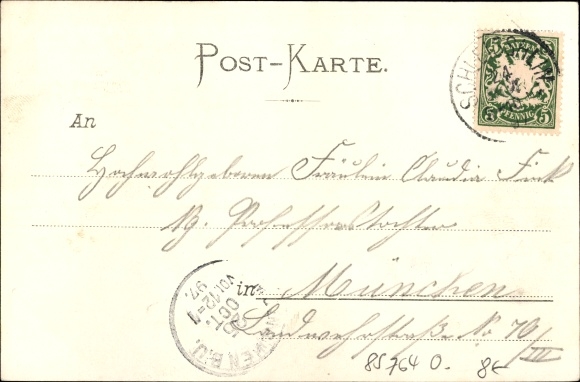 POST-KARTE.
BAYERN
5 5
PFENNIG
An
Hochwohlgeboren Fräulein Claudia Fink
Professorstochter
in München
Landwehrstraße No 70/III
OCT.
VOR. 12-1
97.
85764 O. 8€